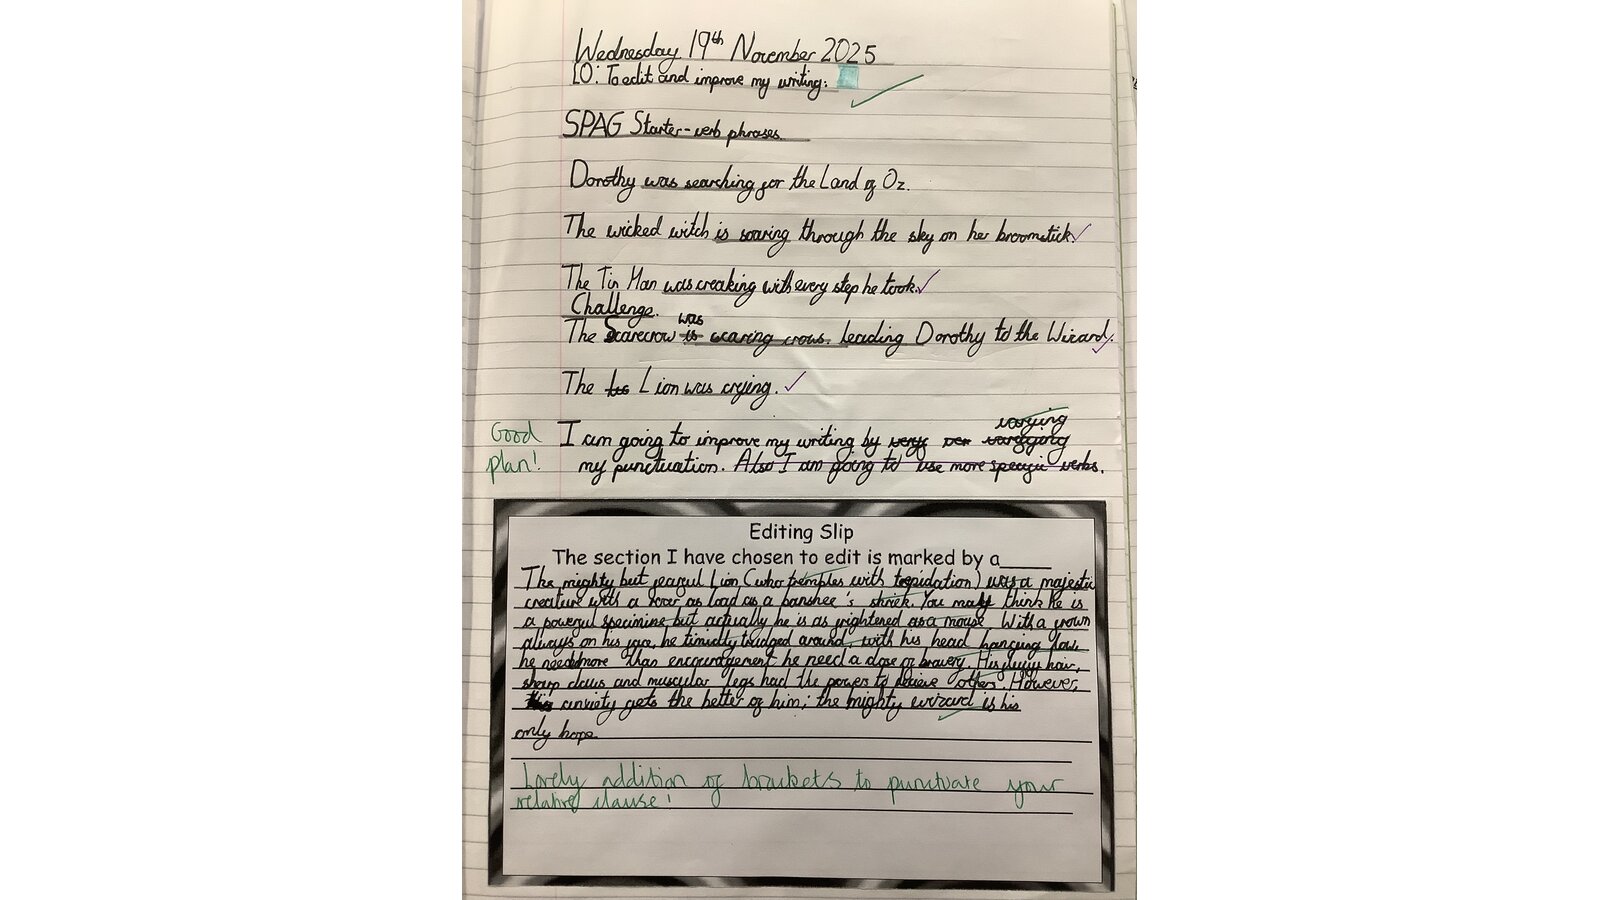 Wednesday 19th November 2025
LO: To edit and improve my writing.
SPAG Starter - verb phrases.
Dorothy was searching for the Land of Oz.
The wicked witch is soaring through the sky on her broomstick
The Tin Man was creaking with every step he took.
Challenge.
was
The Scarecrow is scaring crows. leading Dorothy to the Wizard.
The Lion was crying.
varying
Good
I am going to improve my writing by
plan!
my punctuation. Also I am going to use more specific verbs.
Editing Slip
The section I have chosen to edit is marked by a____
The mighty but fearful Lion (who trembles with trepidation) was a majestic
creature with a roar as load as a banshee's shriek. You may think he is
a powerful specimine but actually he is as frightened as a mouse. With a frown
always on his face, he timidly trudged around, with his head hanging low.
he needs more than encouragement he need a dose of bravery. His fluffy hair,
sharp claws and muscular legs had the powers to deceive others. However,
anxiety gets the better of him; the mighty wizard is his
only hope.
Lovely addition of brackets to punctuate your
relative clause!